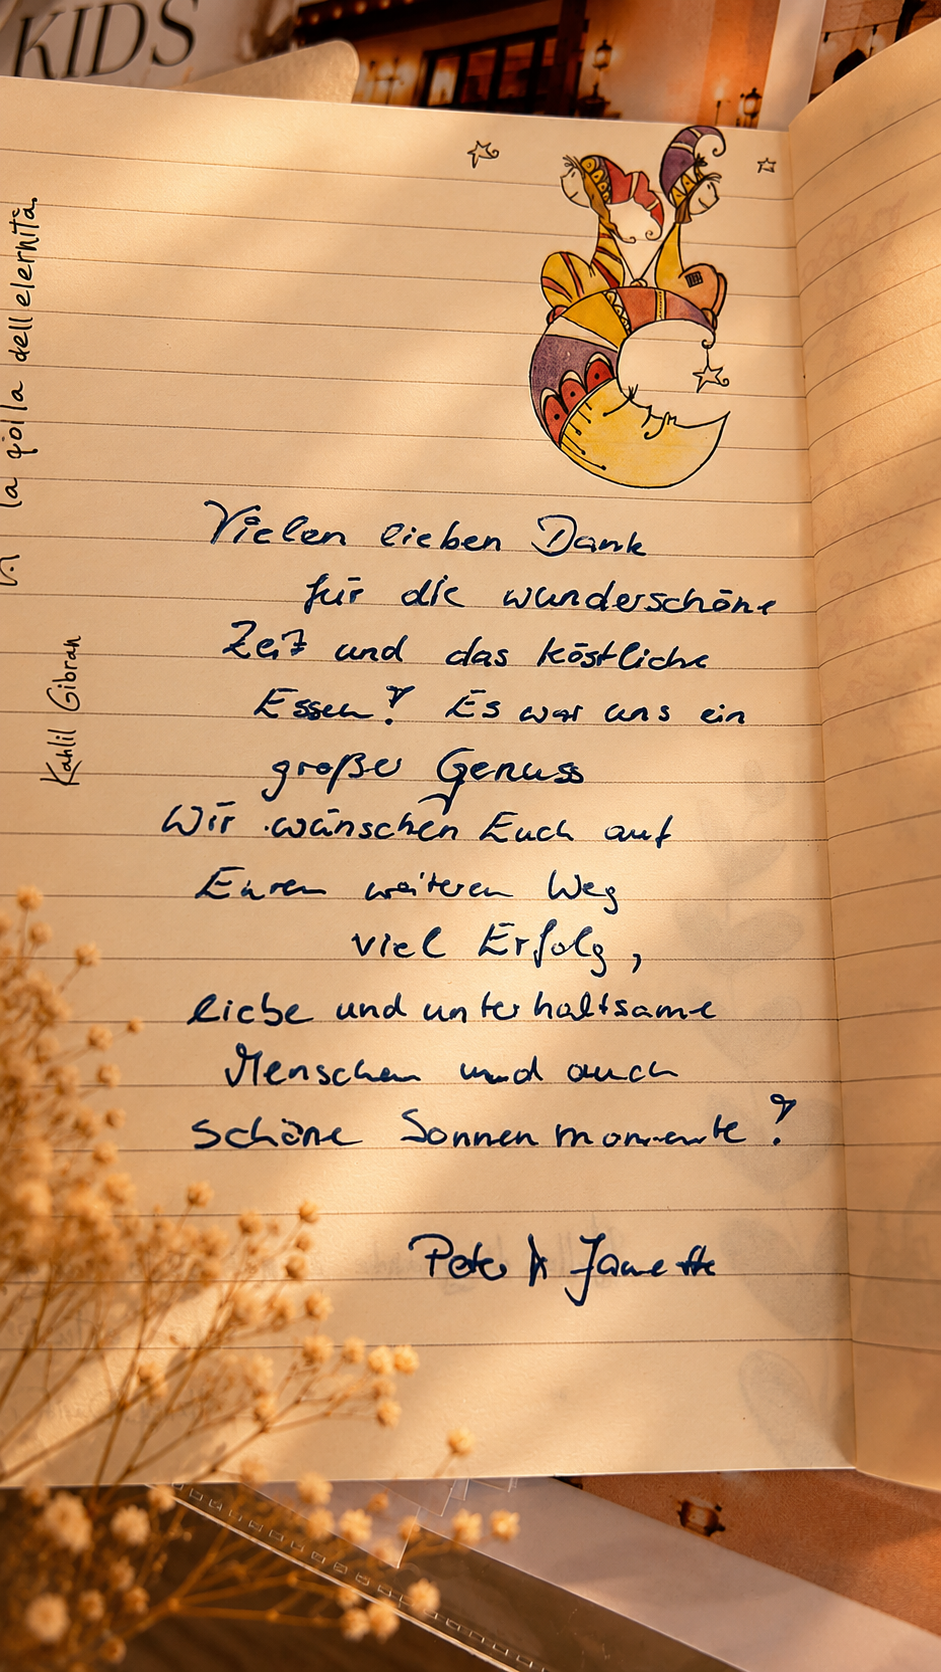 KIDS
la gioia dell'eternità.
Kahlil Gibran
Vielen lieben Dank
für die wunderschöne
Zeit und das köstliche
Essen! Es war uns ein
großer Genuss
Wir wünschen Euch auf
Euren weiteren Weg
viel Erfolg,
liebe und unterhaltsame
Menschen und auch
schöne Sonnenmomente!
Peter & Janette